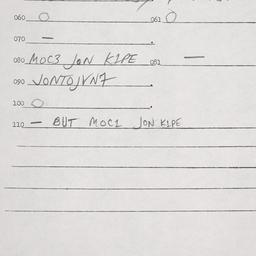 060 O 061 O
070 —
080 MOC3 JON K1PE 081 —
090 JONTOJVN7
100 O
110 — BUT MOC1 JON K1PE